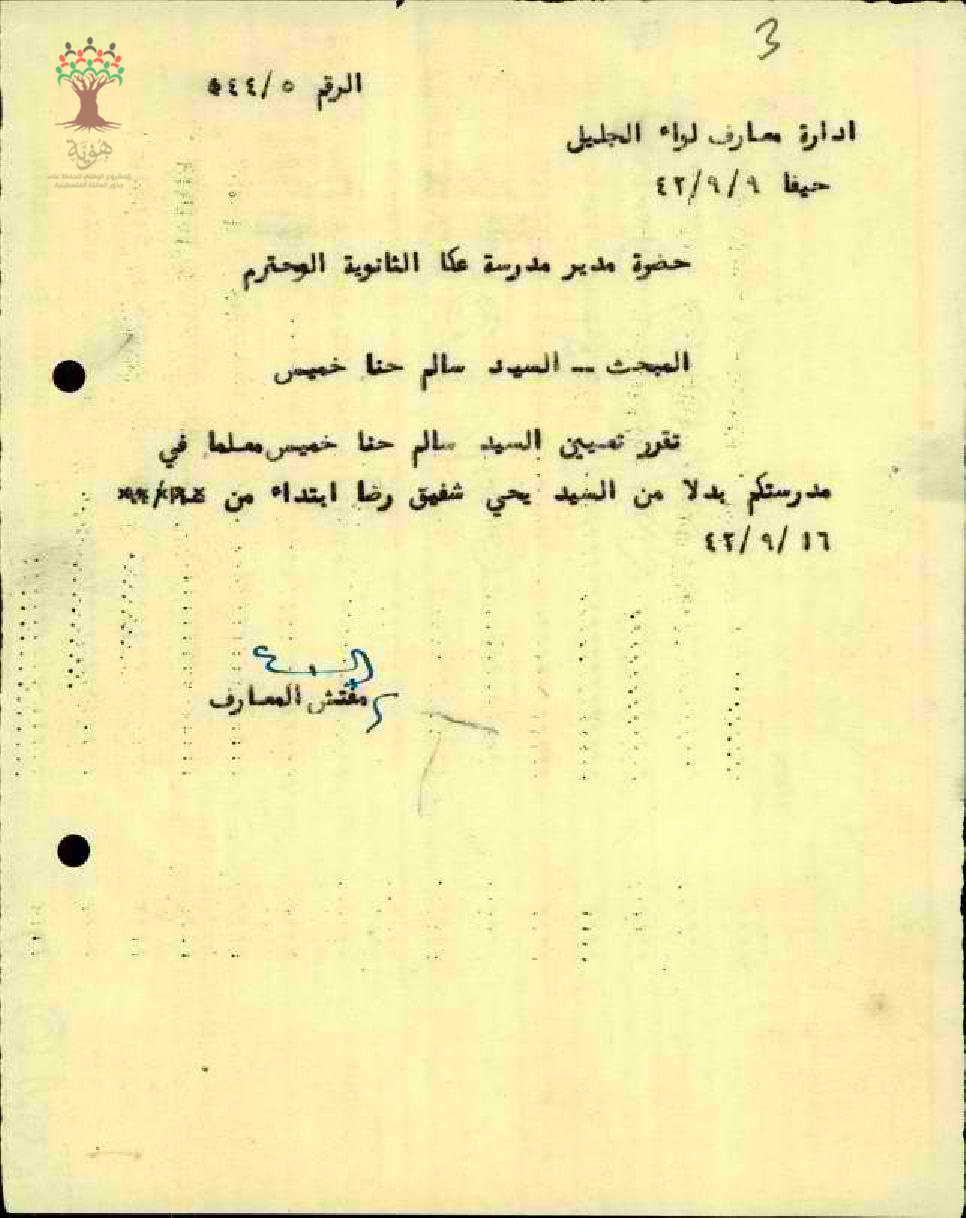 3
الرقم ٥/٤٤
هوية
المشروع الوطني للحفاظ على
جذور العائلة الفلسطينية
ادارة معارف لواء الجليل
حيفا ٩/٩/٤٢
حضرة مدير مدرسة عكا الثانوية المحترم
المبحث – السيد سالم حنا خميس
تقرر تعيين السيد سالم حنا خميس معلما في
مدرستكم بدلا من السيد يحي شفيق رضا ابتداء من
١٦/٩/٤٢
مفتش المعارف